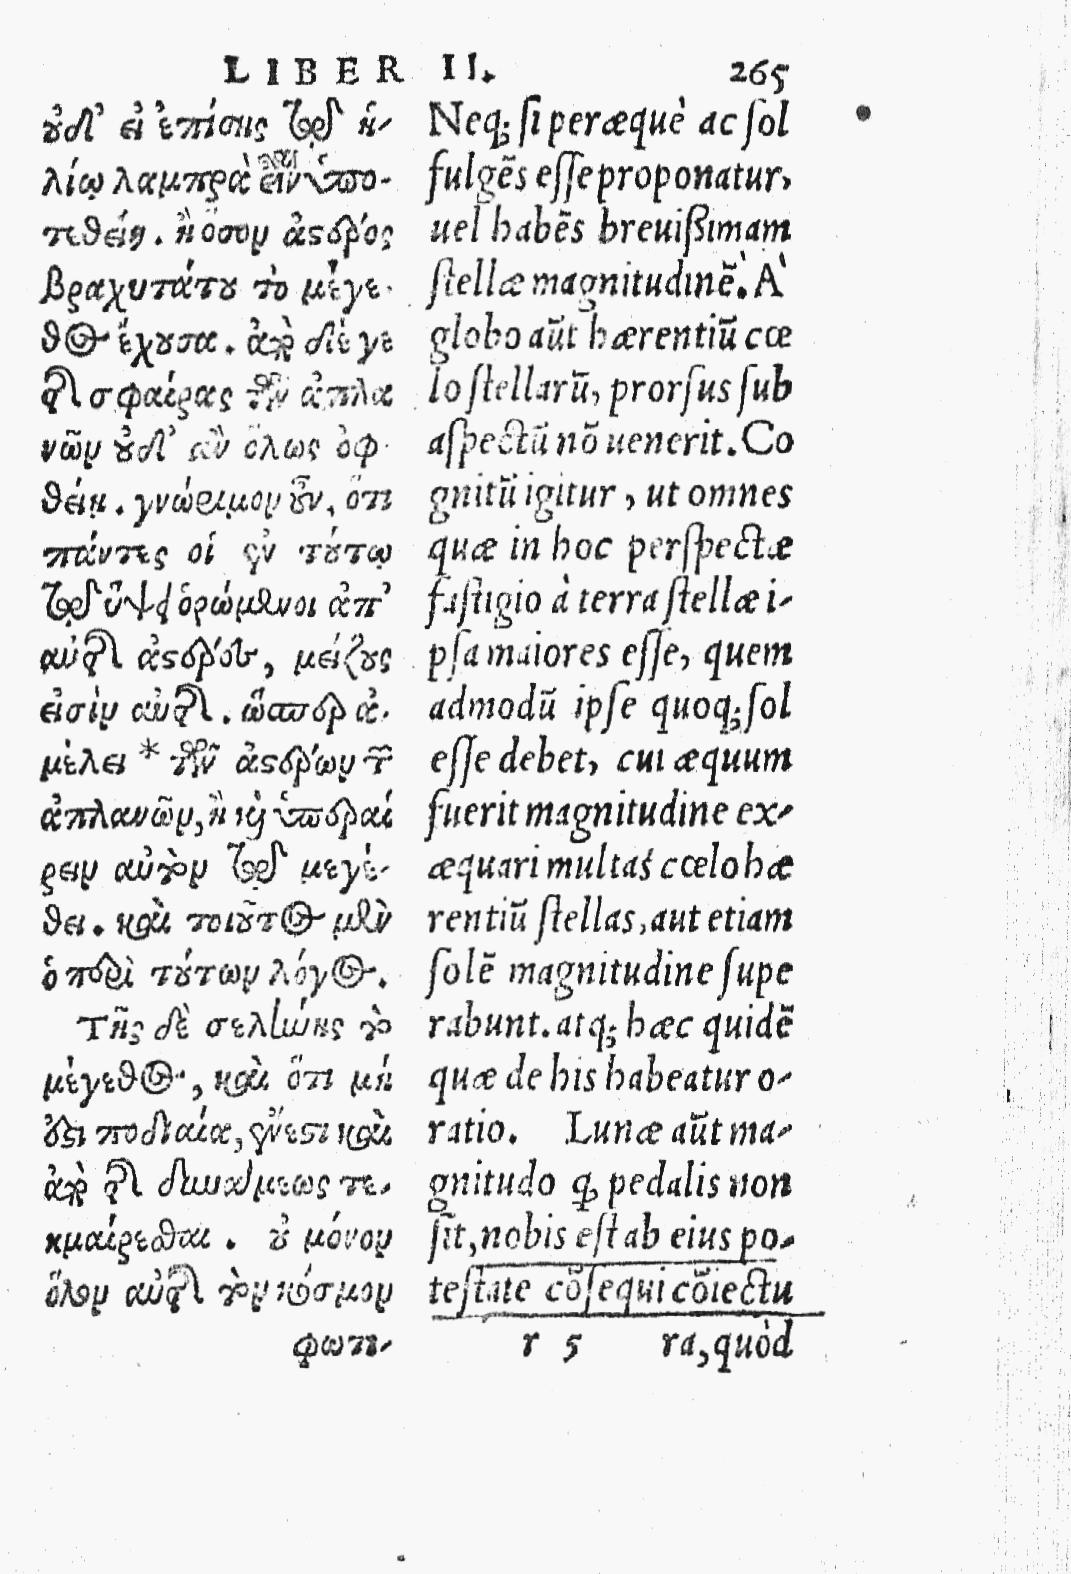 LIBER II. 265
οὐδ' εἰ ἐπίσης τῷ ἡ-
λίῳ λαμπρὰ εἶναι ὑπο-
τεθείη. ἢ ὅσον ἀστρός
βραχυτάτου τὸ μέγε-
θος ἔχουσα. ἀπὸ δέ γε
τῆς σφαίρας τῶν ἀπλα
νῶν οὐδ' ἂν ὅλως ὀφ-
θείη. γνώριμον οὖν, ὅτι
πάντες οἱ ἐν τούτῳ
τῷ ὕψει ὁρώμενοι ἀπ'
αὐτῆς ἀστέρες, μείζους
εἰσὶν αὐτῆς. ὥσπερ ἀ-
μέλει * τῶν ἀστέρων τῶν
ἀπλανῶν, ἢ καὶ ὑπεραί
ρειν αὐτὸν τῷ μεγέ-
θει. καὶ τοιοῦτος μὲν
ὁ περὶ τούτων λόγος.
Τῆς δὲ σελήνης τὸ
μέγεθος, καὶ ὅτι μή
ἐστι ποδιαία, ἔνεστι καὶ
ἀπὸ τῆς δυνάμεως τε-
κμαίρεσθαι. οὐ μόνον
ὅλον αὐτῆς τὸν κόσμον
φωτι-
Neq; si peræquè ac sol
fulgẽs esse proponatur,
uel habẽs breuissimam
stellæ magnitudinẽ. À
globo aũt hærentiũ cœ
lo stellarũ, prorsus sub
aspectũ nõ uenerit. Co
gnitũ igitur, ut omnes
quæ in hoc perspectæ
fastigio à terra stellæ i-
psa maiores esse, quem
admodũ ipse quoq; sol
esse debet, cui æquum
fuerit magnitudine ex-
æquari multas cœlo hæ
rentiũ stellas, aut etiam
solẽ magnitudine supe
rabunt. atq; hæc quidẽ
quæ de his habeatur o-
ratio. Lunæ aũt ma-
gnitudo ꝙ pedalis non
sit, nobis est ab eius po-
testate cõsequi cõiectu
r 5 ra, quòd